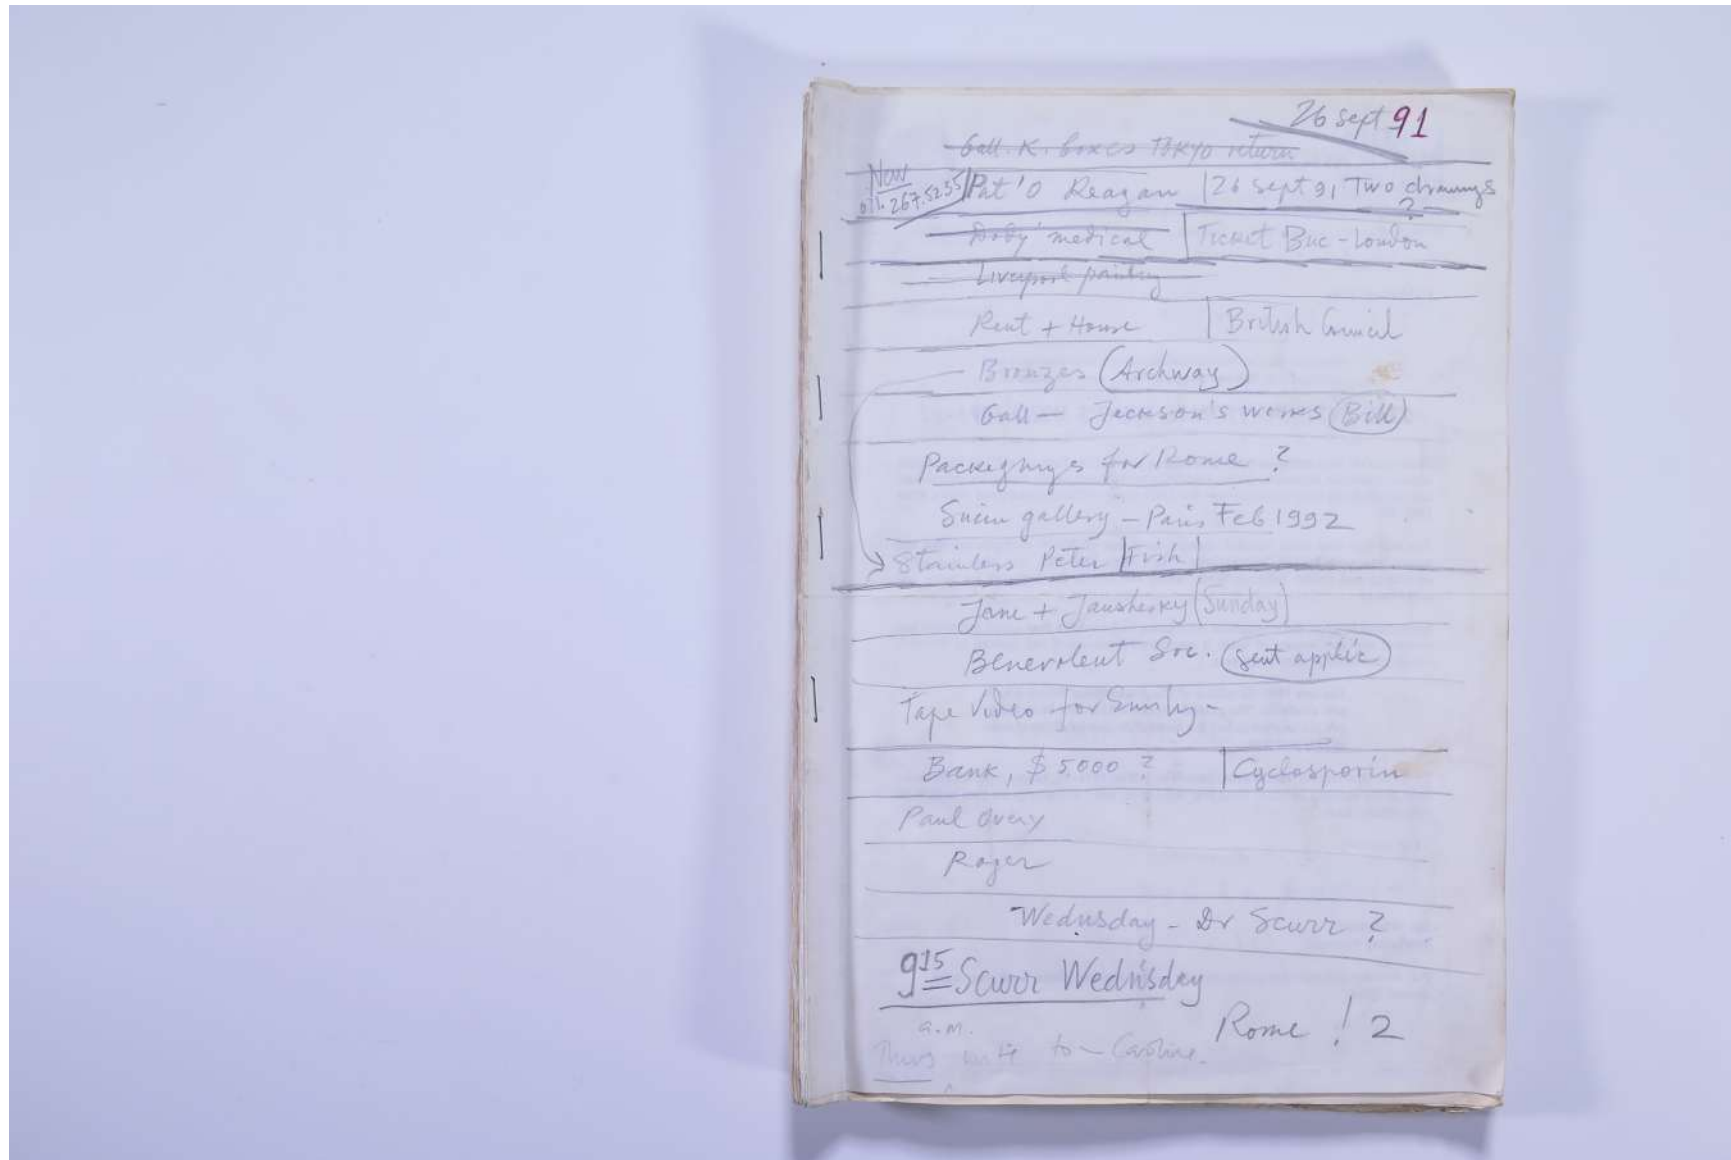 26 sept 91
Gall. K. boxes Tokyo return
New
071. 267.5235 | Pat 'O Reagan | 26 sept 91 Two drawings ?
Body medical | Ticket Buc - London
Liverpool painting
Rent + House | British Council
Bronzes (Archway)
Gall — Jeckson's works (Bill)
for Rome ?
gallery - Paris Feb 1992
Stainless Peter | Fish |
Jane + (Sunday)
Benevolent Soc. (sent applic)
Tape Video for
Bank, $ 5000 ? | Cyclosporin
Paul Overy
Roger
Wednsday - Dr Scurr ?
9 15 Scurr Wednisday
a.m.
Rome ! 2
Thurs to - Caroline.